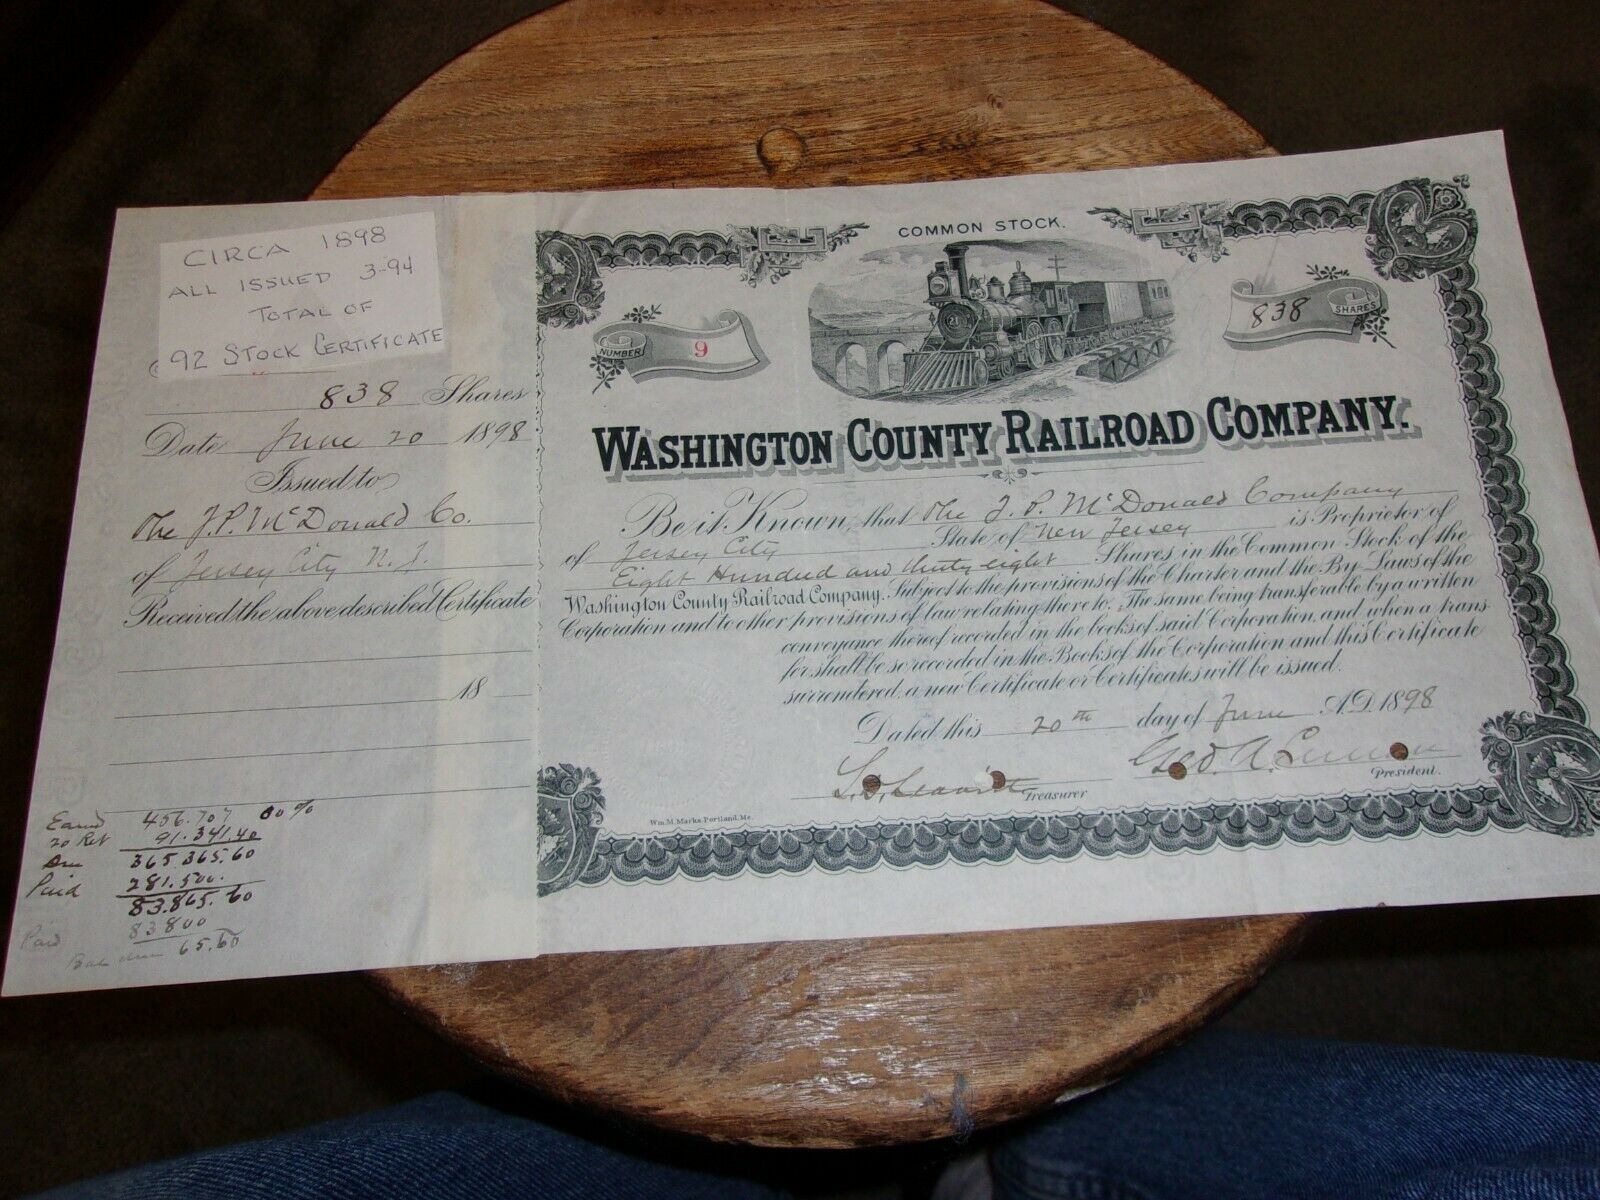 CIRCA 1898
ALL ISSUED 3-94
TOTAL OF
92 STOCK CERTIFICATE
838 Shares
Date June 20 1898
Issued to
The J.P. McDonald Co.
of Jersey City N.J.
Received the above described Certificate
18
Earnd 456.707 80%
20 Ret 91.341.40
Due 365 365.60
Paid 281.500.
83.865.60
Paid 83800
Bal due 65.60
COMMON STOCK.
NUMBER 9
21
838 SHARES
WASHINGTON COUNTY RAILROAD COMPANY.
Be it Known, that The J. P. McDonald Company
of Jersey City State of New Jersey is Proprietor of
Eight Hundred and thirty eight Shares in the Common Stock of the
Washington County Railroad Company. Subject to the provisions of the Charter and the By-Laws of the
Corporation and to other provisions of law relating thereto. The same being transferable by a written
conveyance thereof recorded in the books of said Corporation, and when a trans-
fer shall be so recorded in the Books of the Corporation and this Certificate
surrendered, a new Certificate or Certificates will be issued.
Dated this 20th day of June A.D. 1898
Geo. A.
Treasurer
President.
Wm. M. Marks, Portland, Me.